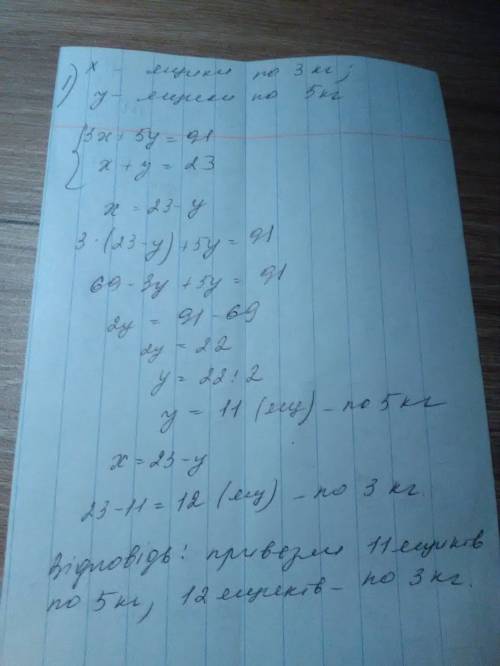 1) x - ящики по 3 кг;
y - ящики по 5кг
{3x + 5y = 91
x + y = 23
x = 23 - y
3·(23-y)+5y = 91
69 - 3y + 5y = 91
2y = 91 - 69
2y = 22
y = 22 : 2
y = 11 (ящ) - по 5 кг
x = 23 - y
23 - 11 = 12 (ящ) - по 3 кг.
Відповідь: привезли 11 ящиків
по 5кг, 12 ящиків - по 3 кг.